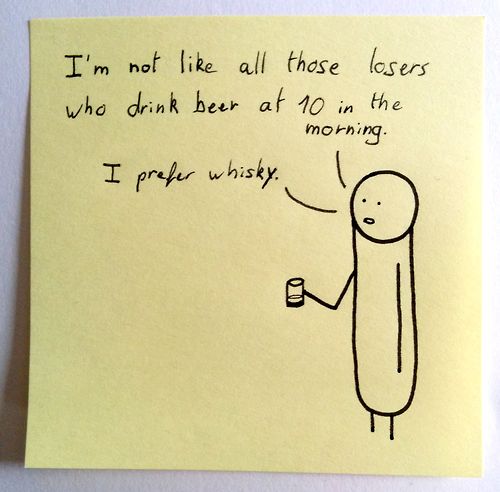 I'm not like all those losers
who drink beer at 10 in the
morning.
I prefer whisky.